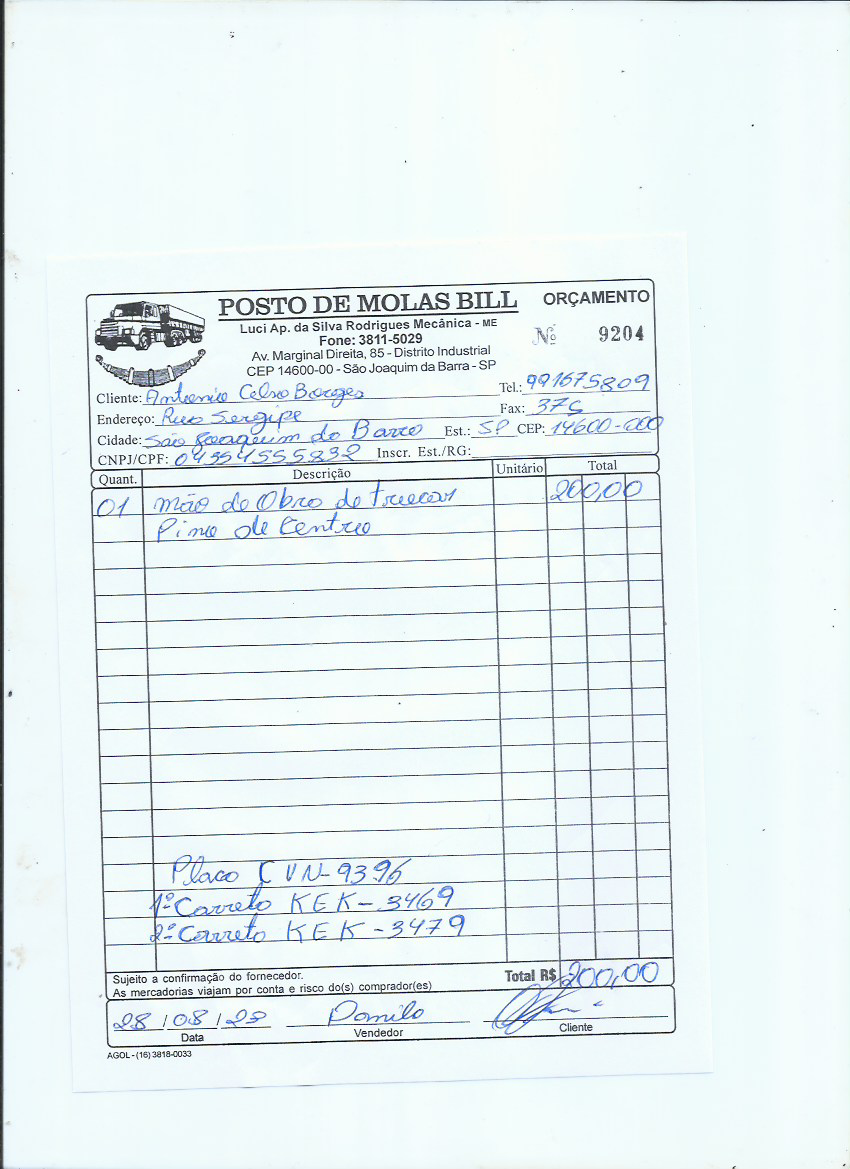 POSTO DE MOLAS BILL ORÇAMENTO
Luci Ap. da Silva Rodrigues Mecânica - ME
Fone: 3811-5029
Nº 9204
Av. Marginal Direita, 85 - Distrito Industrial
CEP 14600-00 - São Joaquim da Barra - SP
Cliente: Antonio Celso Borges Tel.: 991675809
Endereço: Rua Sergipe Fax: 375
Cidade: São Joaquim da Barra Est.: SP CEP: 14600-000
CNPJ/CPF: 04354555832 Inscr. Est./RG:
Quant. Descrição Unitário Total
01 mão de Obra de trucar 200,00
Pino de Centro
Placa CVN-9396
1º Carreta KEK-3469
2º Carreta KEK-3479
Sujeito a confirmação do fornecedor. Total R$ 200,00
As mercadorias viajam por conta e risco do(s) comprador(es)
28/08/23 Danilo
Data Vendedor Cliente
AGOL - (16) 3818-0033